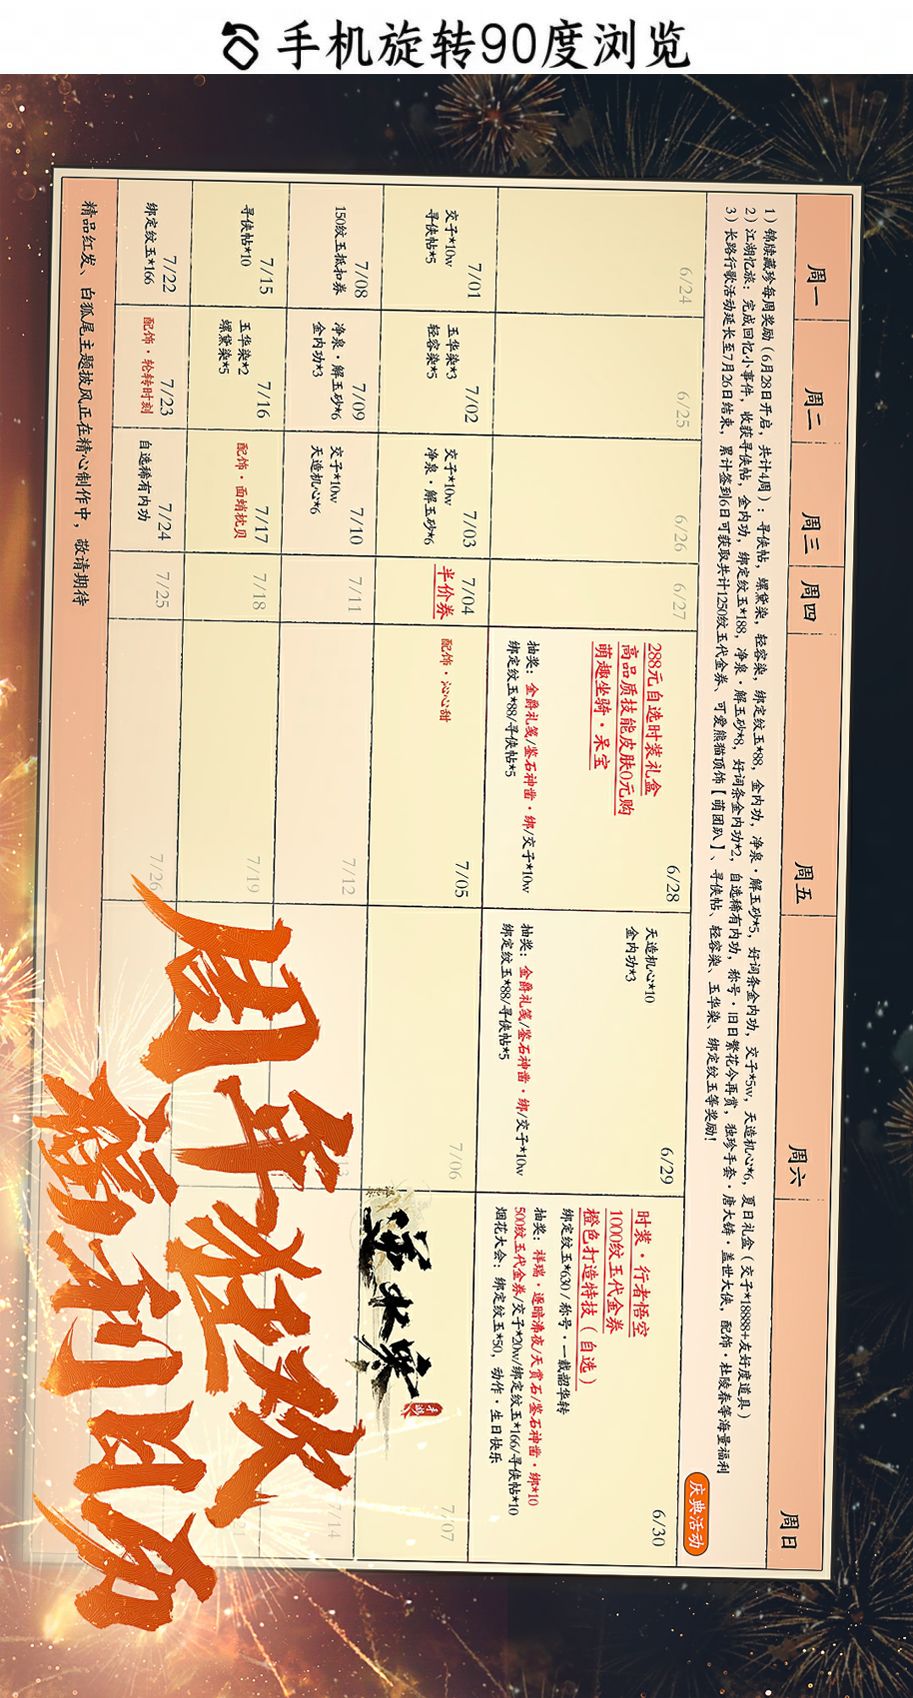 手机旋转90度浏览
周一
周二
周三
周四
周五
周六
周日
1)锦牍藏珍每周奖励(6月28日开启,共计4周):寻侠帖,螺黛染,轻容染,绑定纹玉*88,金内功,净泉·解玉砂*5,好词条金内功,交子*5w,天造机心*6,夏日礼盒(交子*18888+友好度道具)
2)江湖忆旅:完成回忆小事件,收获寻侠帖,金内功,绑定纹玉*188,净泉·解玉砂*8,好词条金内功*2,自选稀有内功,称号·旧日繁花今再赏,独珍手套·唐大铸·盖世大侠,配饰·杜陵春等海量福利
3)长路行歌活动延长至7月26日结束,累计签到6日可获取共计1250纹玉代金券、可爱熊猫顶饰【萌团趴】、寻侠帖、轻容染、玉华染、绑定纹玉等奖励!
庆典活动
6/24
6/25
6/26
6/27
6/28
288元自选时装礼盒
高品质技能皮肤0元购
萌趣坐骑·呆宝
抽奖:金爵礼笺/鉴石神凿·绑/交子*10w
绑定纹玉*88/寻侠帖*5
6/29
天造机心*10
金内功*3
抽奖:金爵礼笺/鉴石神凿·绑/交子*10w
绑定纹玉*88/寻侠帖*5
6/30
时装·行者悟空
1000纹玉代金券
橙色打造特技(自选)
绑定纹玉*630/称号·一载韶华转
抽奖:祥瑞·逐暗沸夜/天赏石/鉴石神凿·绑*10
500纹玉代金券/交子*20w/绑定纹玉*166/寻侠帖*10
烟花大会:绑定纹玉*50,动作·生日快乐
7/01
交子*10w
寻侠帖*5
7/02
玉华染*3
轻容染*5
7/03
交子*10w
净泉·解玉砂*6
7/04
半价券
7/05
配饰·沁心甜
7/06
7/07
7/08
150纹玉抵扣券
7/09
净泉·解玉砂*6
金内功*3
7/10
交子*10w
天造机心*6
7/11
7/12
13
7/14
7/15
寻侠帖*10
7/16
玉华染*2
螺黛染*5
7/17
配饰·面蛸枕贝
7/18
7/19
21
7/22
绑定纹玉*166
7/23
配饰·轮转时刻
7/24
自选稀有内功
7/25
7/26
精品红发、白狐尾主题披风正在精心制作中,敬请期待
逆水寒
手游
周年狂欢
福利日历